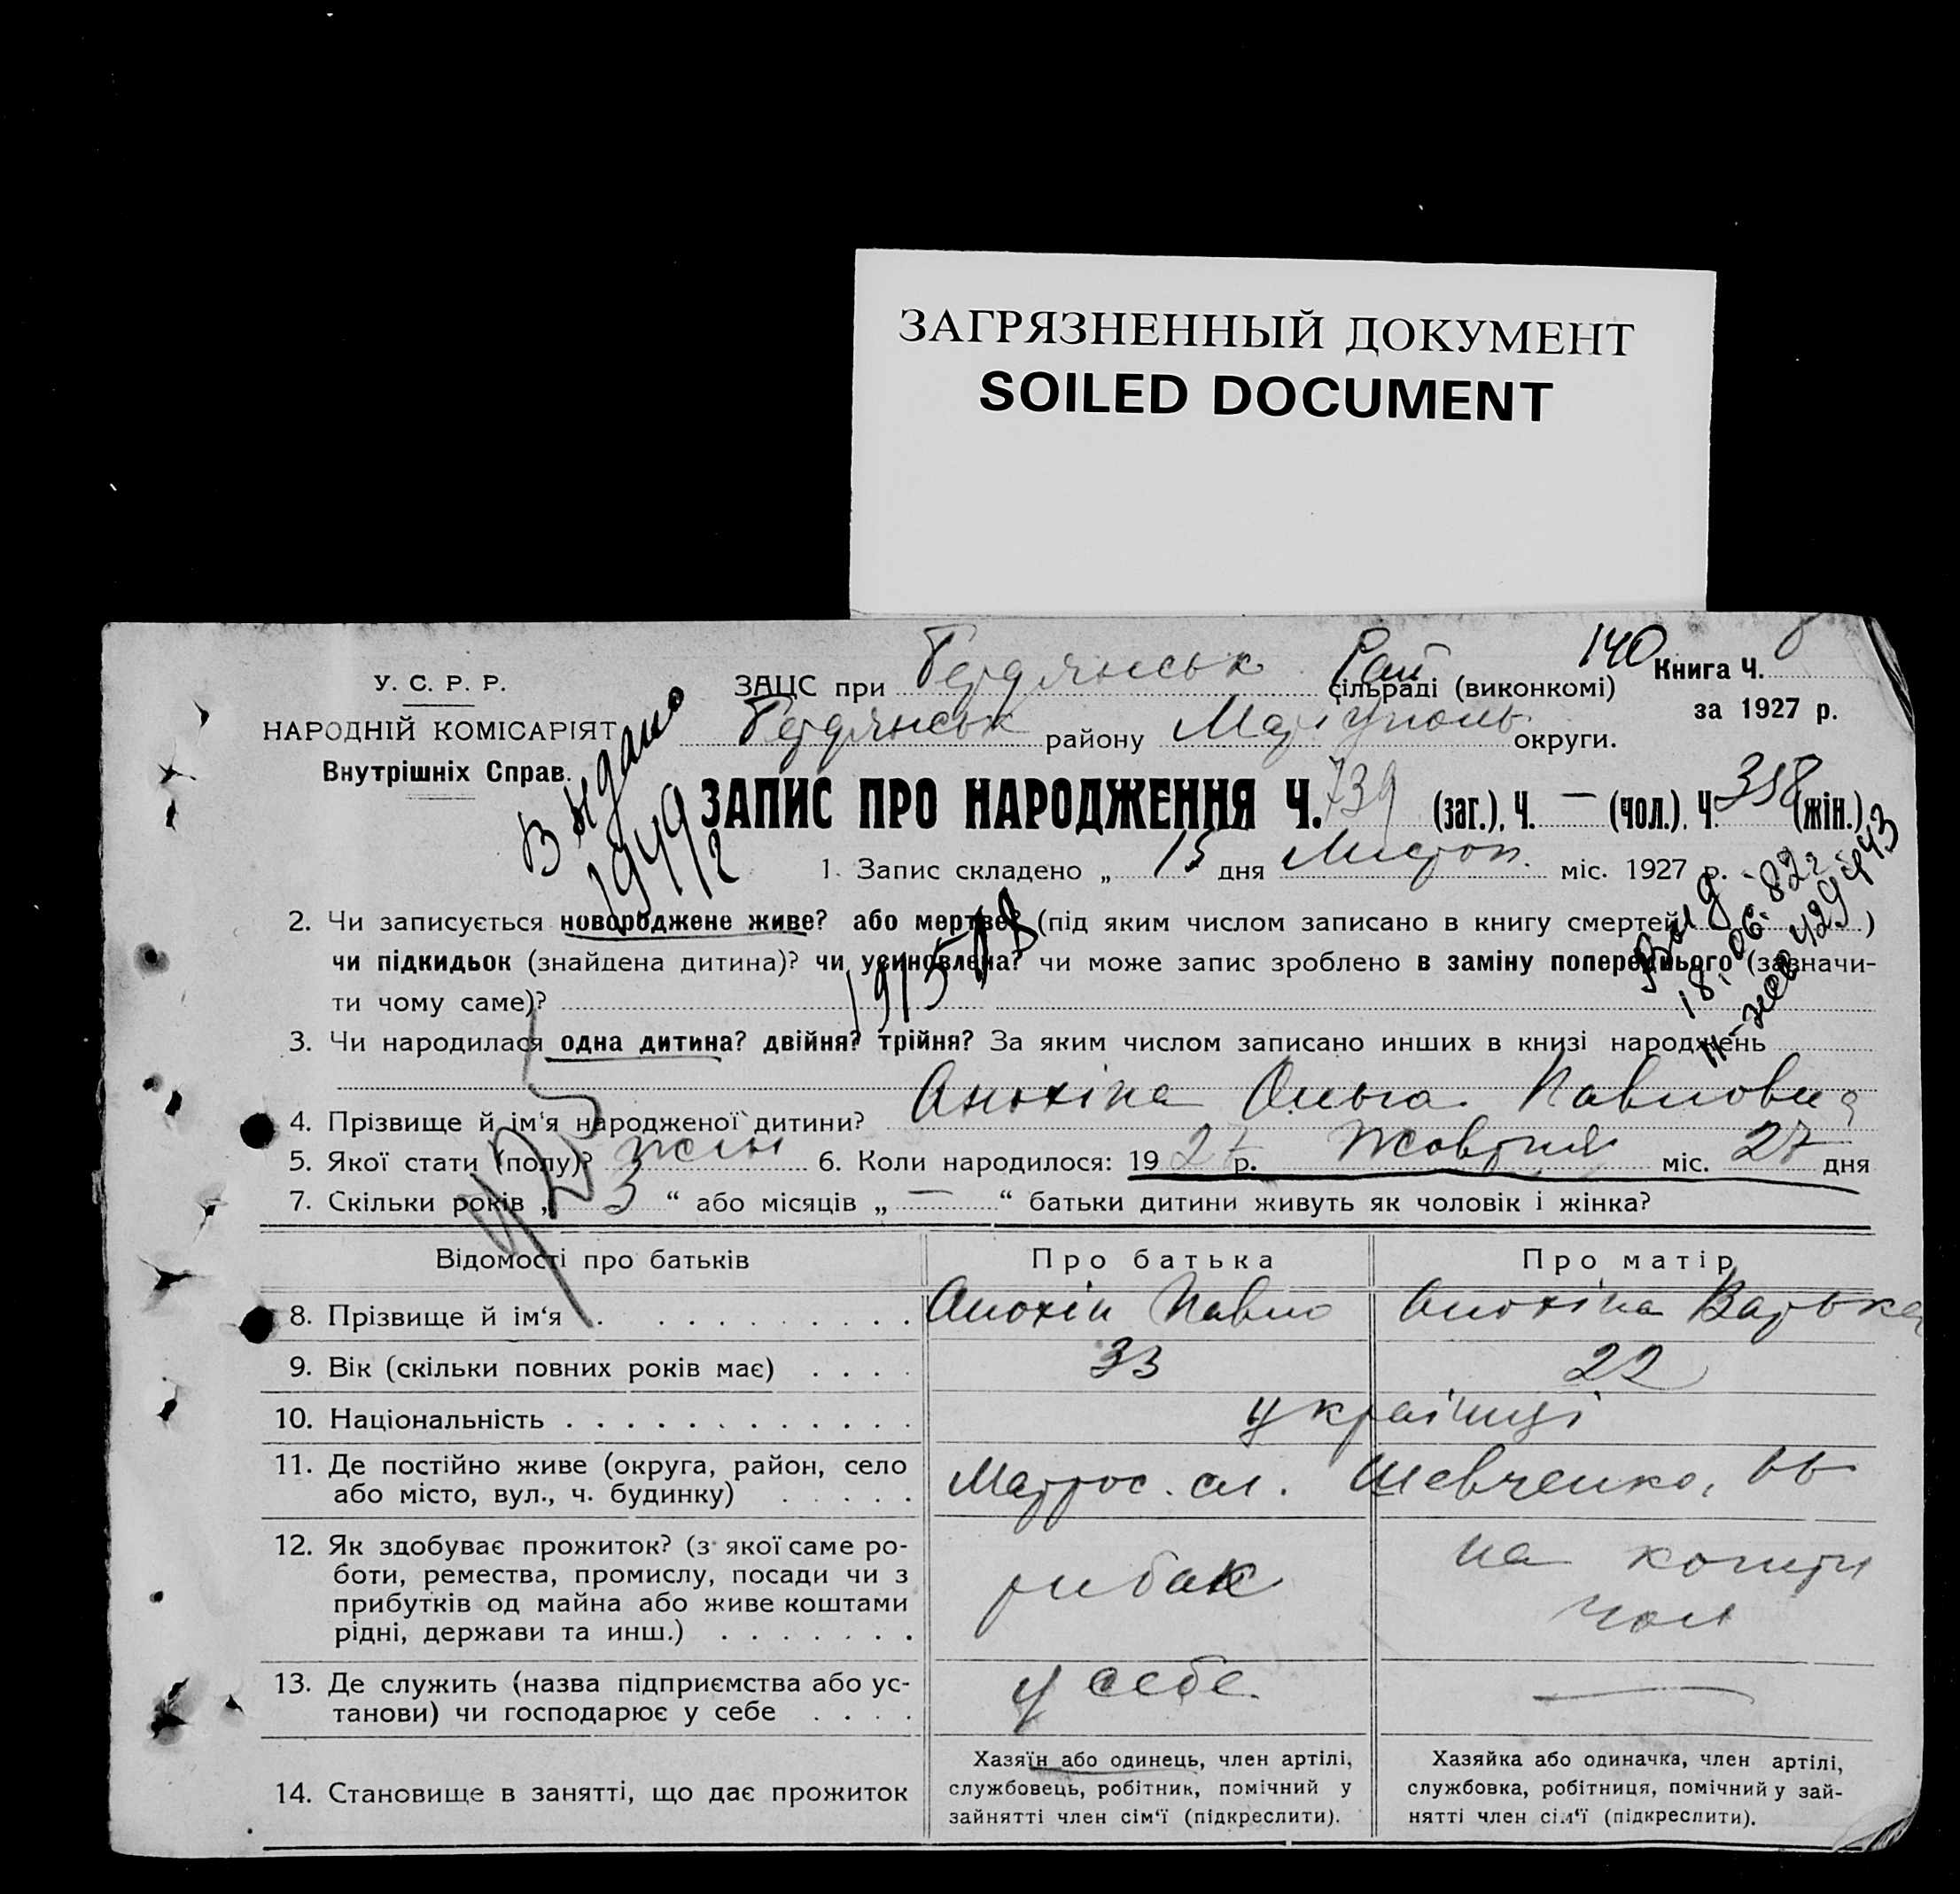 ЗАГРЯЗНЕННЫЙ ДОКУМЕНТ
SOILED DOCUMENT
140
У. С. Р. Р.
НАРОДНІЙ КОМІСАРІЯТ
Внутрішніх Справ.
ЗАЦС при Бердянськ Рай сільраді (виконкомі)
Книга Ч.
за 1927 р.
Бердянськ району Маріуполь округи.
Видано
1949
ЗАПИС ПРО НАРОДЖЕННЯ Ч. 739 (заг.), Ч. — (чол.), Ч. 358 (жін.)
1. Запис складено „ 15 дня Листоп. міс. 1927 р.
18.06.82г.
2. Чи записується новороджене живе? або мертве? (під яким числом записано в книгу смертей )
чи підкидьок (знайдена дитина)? чи усиновлена? чи може запис зроблено в заміну попереднього (зазначи-
ти чому саме)?
3. Чи народилася одна дитина? двійня? трійня? За яким числом записано инших в книзі народжень
4. Прізвище й ім'я народженої дитини? Анохіна Ольга Павловна
5. Якої стати (полу)? жін 6. Коли народилося: 1927 р. Жовтня міс. 27 дня
7. Скільки років „ 3 “ або місяців „ — “ батьки дитини живуть як чоловік і жінка?
Відомості про батьків Про батька Про матір
8. Прізвище й ім'я Анохін Павло Анохіна Варька
9. Вік (скільки повних років має) 33 22
10. Національність українці
11. Де постійно живе (округа, район, село
або місто, вул., ч. будинку) Матрос. сл. Шевченко, 66
12. Як здобуває прожиток? (з якої саме ро-
боти, ремества, промислу, посади чи з
прибутків од майна або живе коштами
рідні, держави та инш.) рибак на кошти
чол
13. Де служить (назва підприємства або ус-
танови) чи господарює у себе у себе —
14. Становище в занятті, що дає прожиток
Хазяїн або одинець, член артілі,
службовець, робітник, помічний у
зайнятті член сім'ї (підкреслити).
Хазяйка або одиначка, член артілі,
службовка, робітниця, помічний у зай-
нятті член сім'ї (підкреслити).